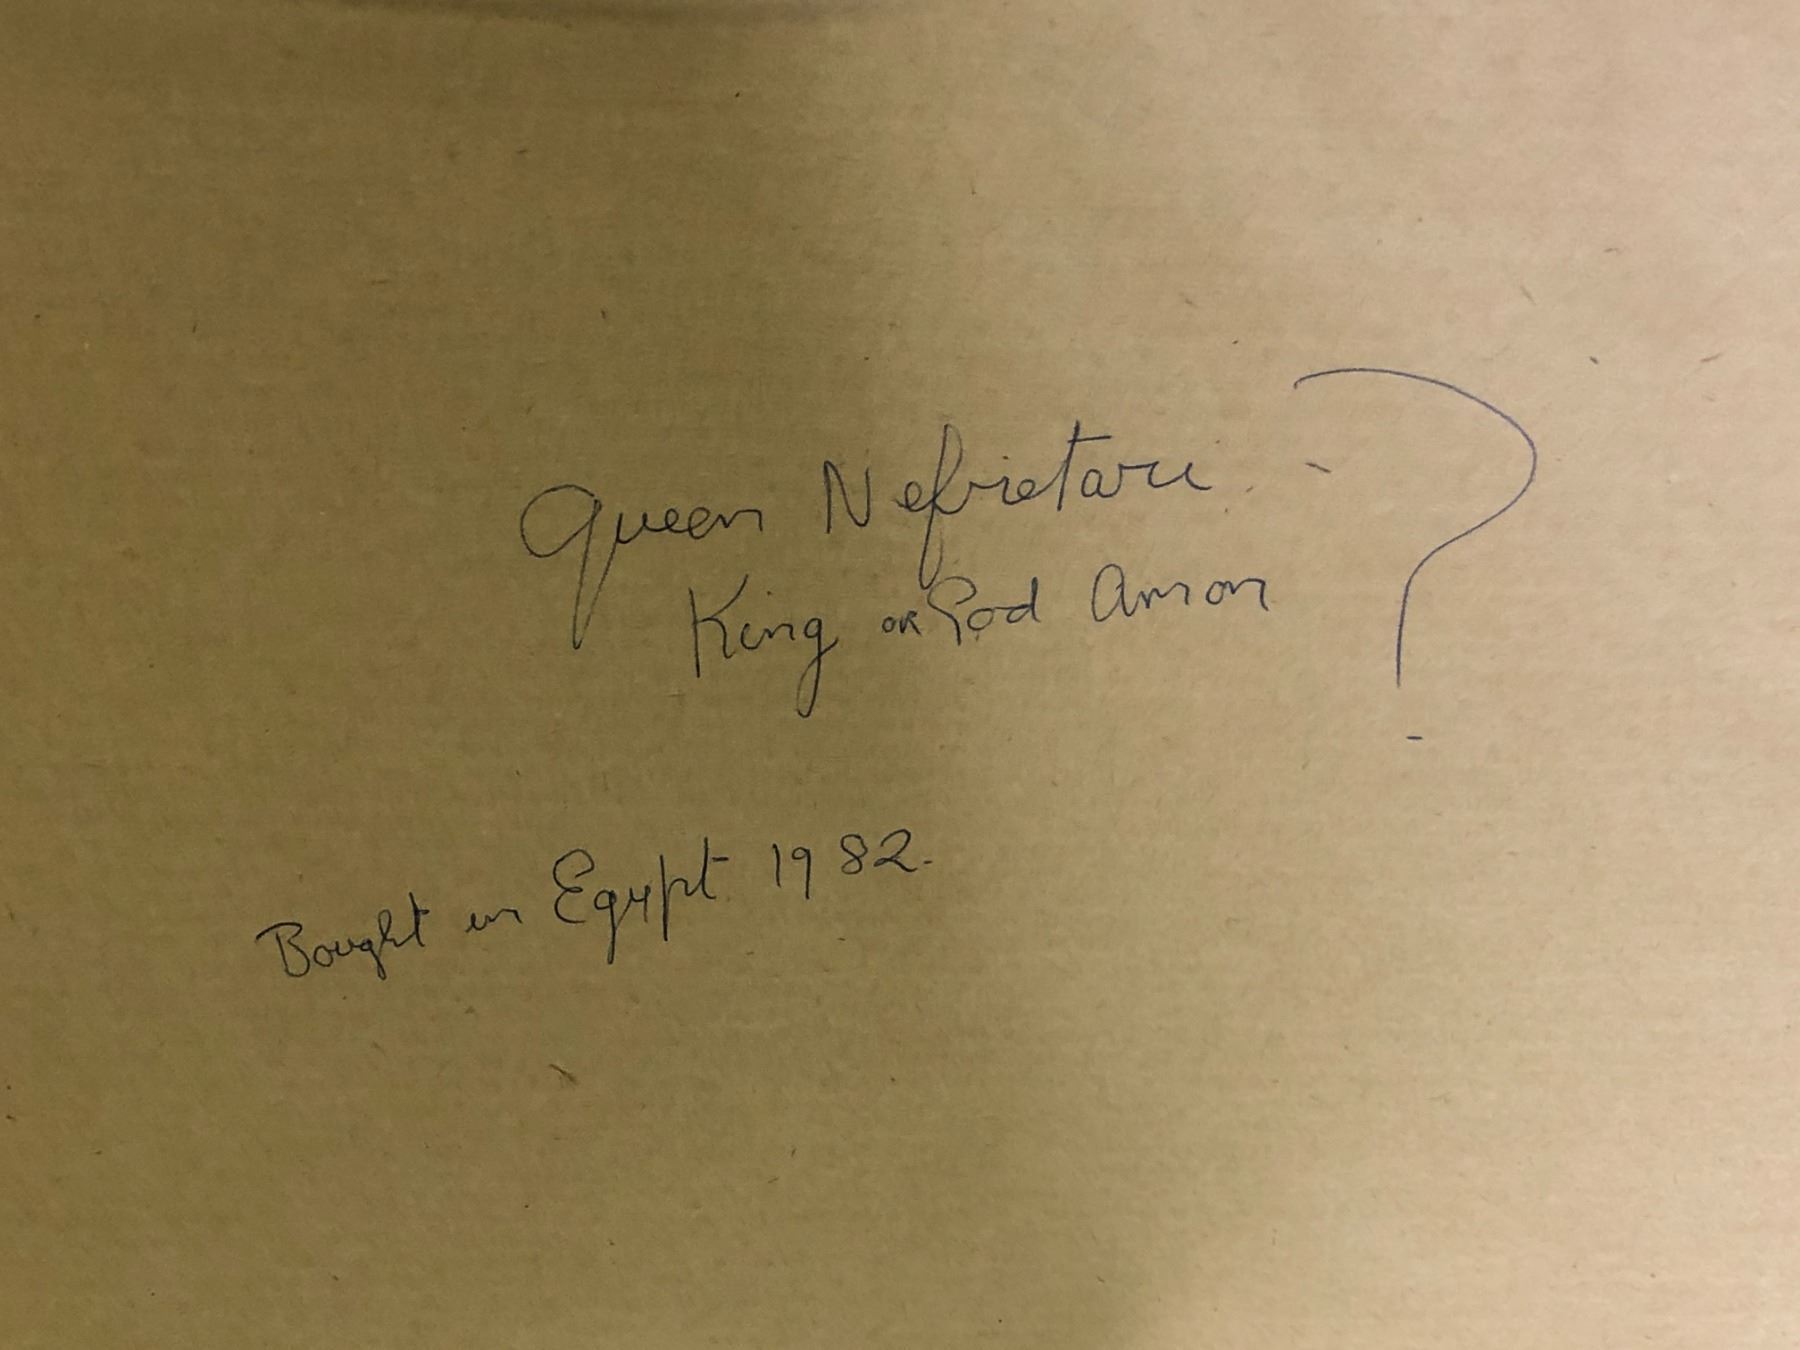 Queen Nefrietari - ?
King or God Amon
Bought in Egypt 1982.